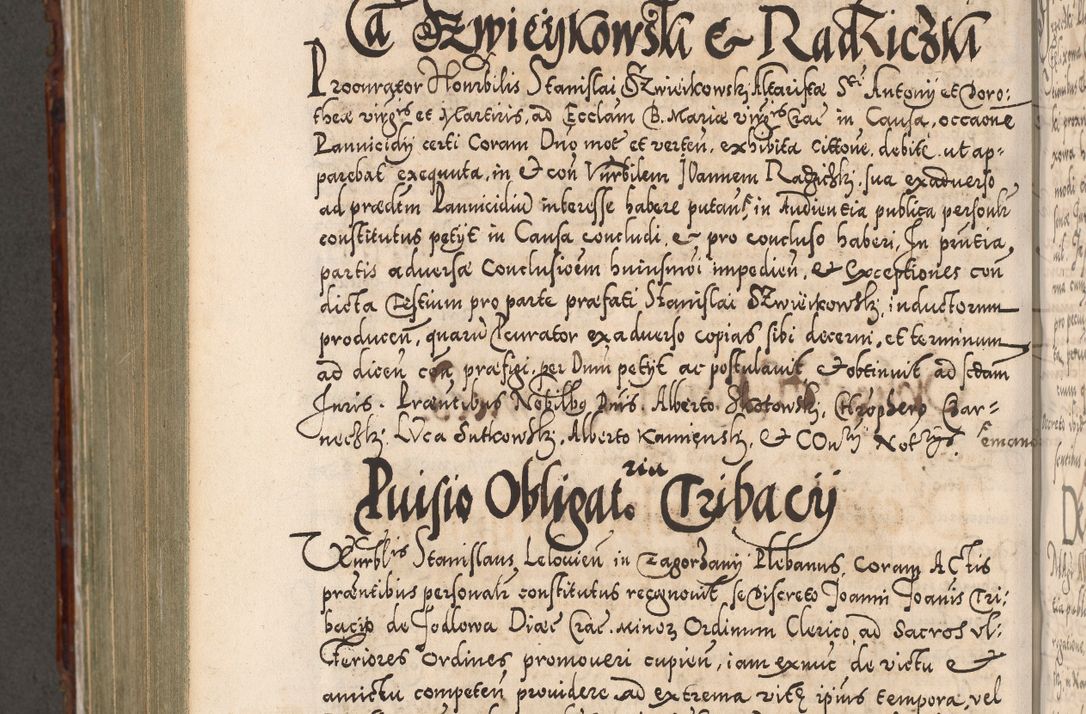 Ca Szwieykowski & Radziczki
Procurator Honrbilis Stanislai Szwieikowsky Altaristæ Sti Antonij et Doro:
theæ virgis et Martiris, ad Ecclam B. Mariæ virgis Crac in Causa, occaone
Pannicidij certi Coram Dno mot et verteñ, exhibita cittone, debite ut ap=
parebat exequuta, in & con Vnrbilem Joannem Radziczky sua exadverso
ad prædtm Pannicidiũ interesse habere putanť in Audientia publica personlr
constitutus petijt in Causa concludi, & pro concluso haberi, In prntia,
partis adversæ Conclusioem huiusmoi impedieñ, & Exceptiones con
dicta Testium pro parte præfati Stanislai Szwieikowsky, inductorum
produceñ, quarũ Pcurator exadverso copias sibi decerni, et terminum
ad diceñ con præfigi, per Dnum petijt ac postulavit & obtinuit ad scdam
Juris. Præntibus Nobilbus Dnis. Alberto Skotowsky, Chrophero Czar=
necky. Luca Sutkowsky, Alberto Kamiensky, &
Puisio Obligat.ria Tribacij
Vnrblis Stanislaus Lelowieñ in Zagorzany Plebanus, Coram Actis
præntibus personalr constitutus recgnovit se Discreto Joanni Joanis Tri:
bacio de Jodlowa Diæc Crac. Minor Ordinum Clerico, ad Sacros vl:
teriores Ordines promoveri cupieñ, iam exnuc de victu &
amictu competeñ providere ad extrema vitę ipius tempora, vel